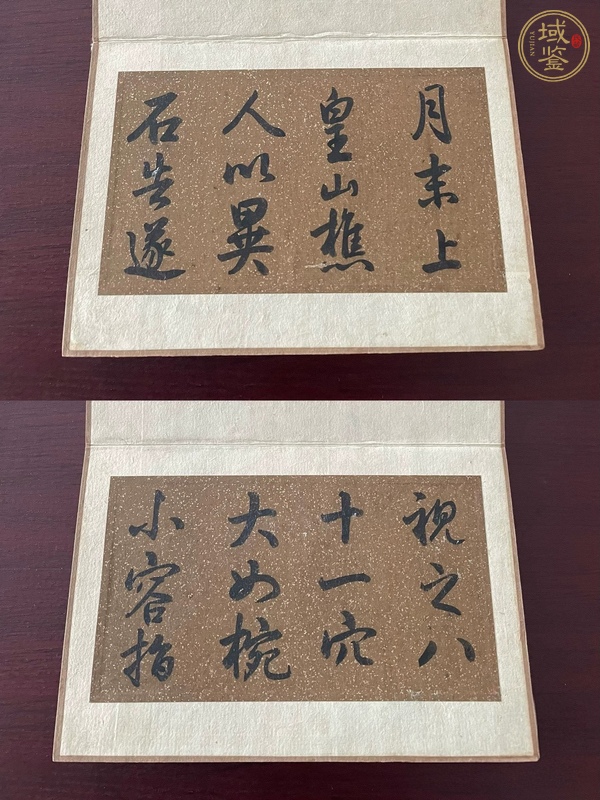 域鉴
YUJIAN
月末上
皇山樵
人以異
石告遂
視之八
十一穴
大如椀
小容指